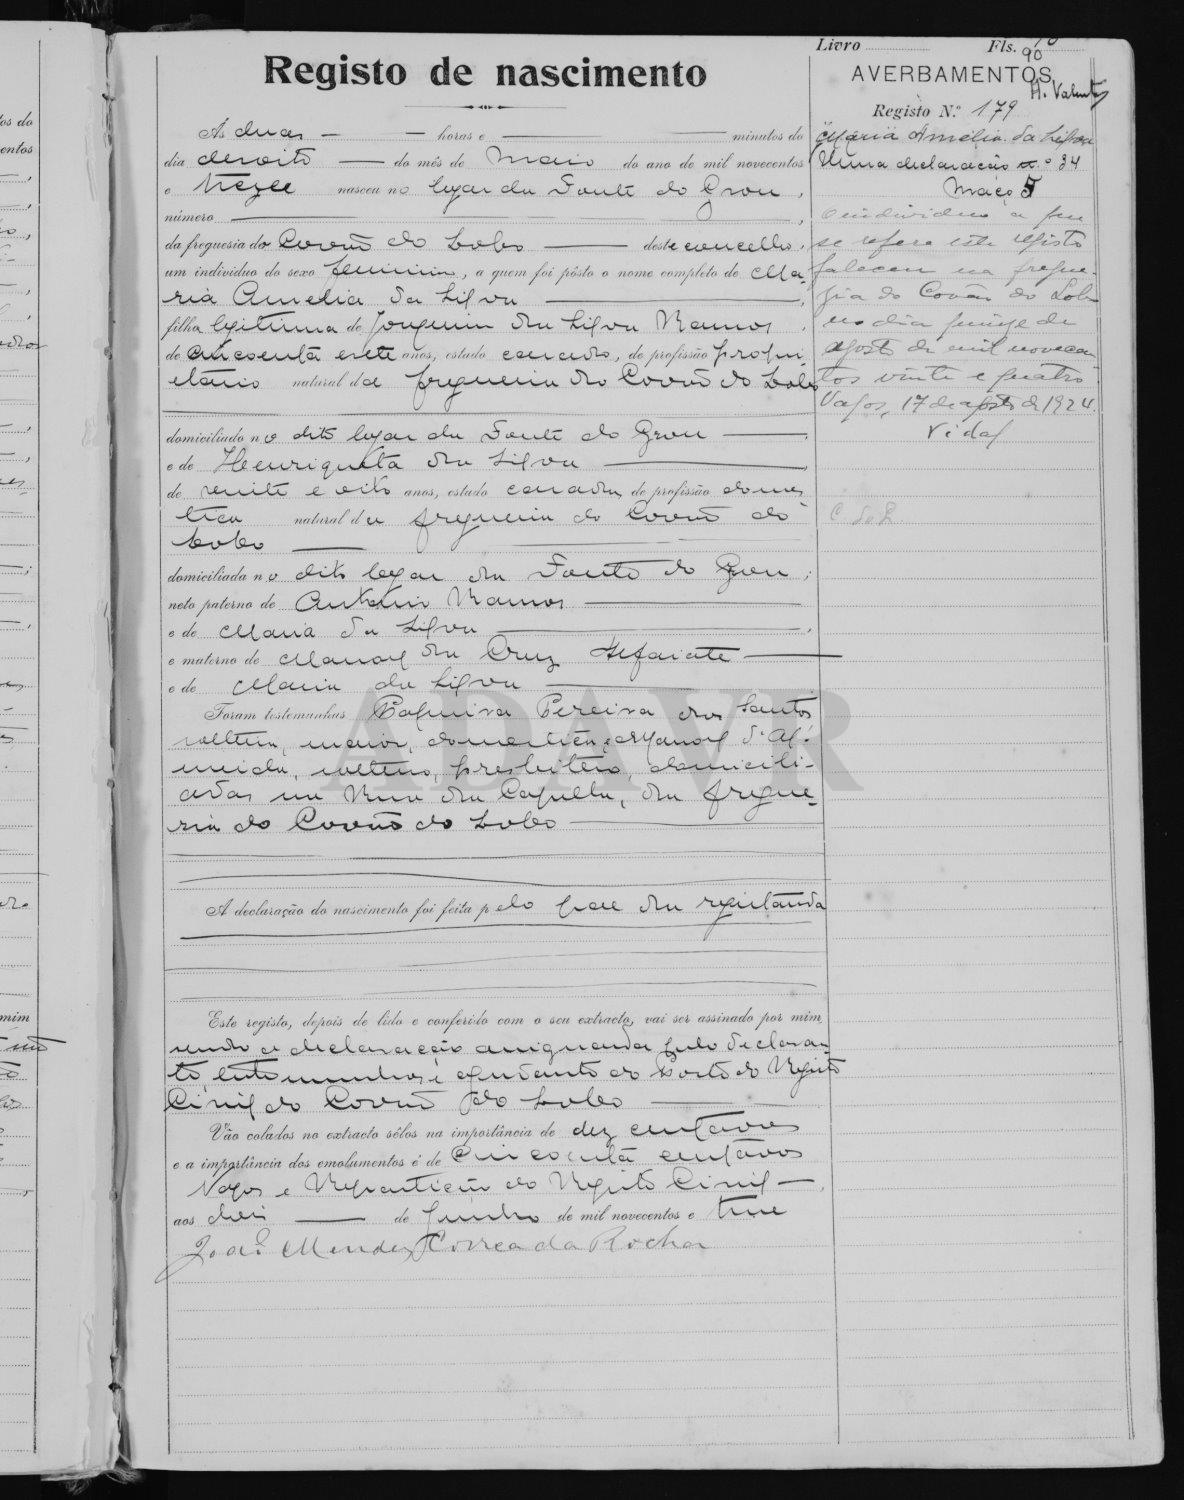 Livro Fls. 90
Registo de nascimento
AVERBAMENTOS
H. Valente
Registo N.º 179
Maria Amelia da Silva
Uma declaração n.º 34
Maço 5
O individuo a que
se refere este registo
faleceu na fregue-
zia do Covão do Lobo
no dia quinze de
agosto de mil novecen
tos vinte e quatro
Vagos, 17 de agosto de 1924.
Vidal
C. do L
Às duas — — horas e — minutos do
dia dezoito — do mês de Maio do ano de mil novecentos
e treze nasceu no logar da Fonte do Grou,
número —,
da freguesia do Covão do Lobo — deste concelho,
um indivíduo do sexo feminino, a quem foi pôsto o nome completo de Ma-
ria Amelia da Silva —,
filha legitima de Joaquim da Silva Ramos,
de cincoenta e sete anos, estado casado, de profissão propri
etario natural da freguesia do Covão do Lobo
domiciliado no dito logar da Fonte do Grou —,
e de Henriqueta da Silva —,
de vinte e oito anos, estado casada, de profissão domes
tica natural da freguesia do Covão do
Lobo —
domiciliada no dito logar da Fonte do Grou;
neto paterno de Antonio Ramos —
e de Maria da Silva —,
e materno de Manoel da Cruz Alfaiate —
e de Maria da Silva —
Foram testemunhas Pereira dos Santos
solteira, maior, domestica, e Manoel d'Al-
meida, solteiro, presbitero, domicili-
ados na Rua da Capella, da fregue-
sia do Covão do Lobo —
A declaração do nascimento foi feita pelo pae da registanda
Este registo, depois de lido e conferido com o seu extracto, vai ser assinado por mim,
sendo a declaração assignada pelo declaran
te, testemunhas e ajudante do Posto do Registo
Civil do Covão do Lobo —
Vão colados no extracto sêlos na importância de dez centavos
e a importância dos emolumentos é de cincoenta centavos
Vagos e Repartição do Registo Civil —,
aos dois — de Junho de mil novecentos e treze
João Mendes Correa da Rocha
ADAVR